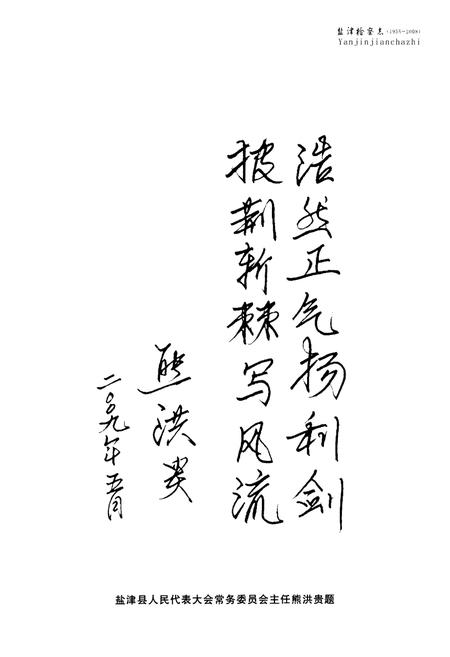 盐津检察志（1955-2008）
Yanjinjianchazhi
浩然正气扬利剑
披荆斩棘写风流
熊洪贵
二〇〇九年五月
盐津县人民代表大会常务委员会主任熊洪贵题